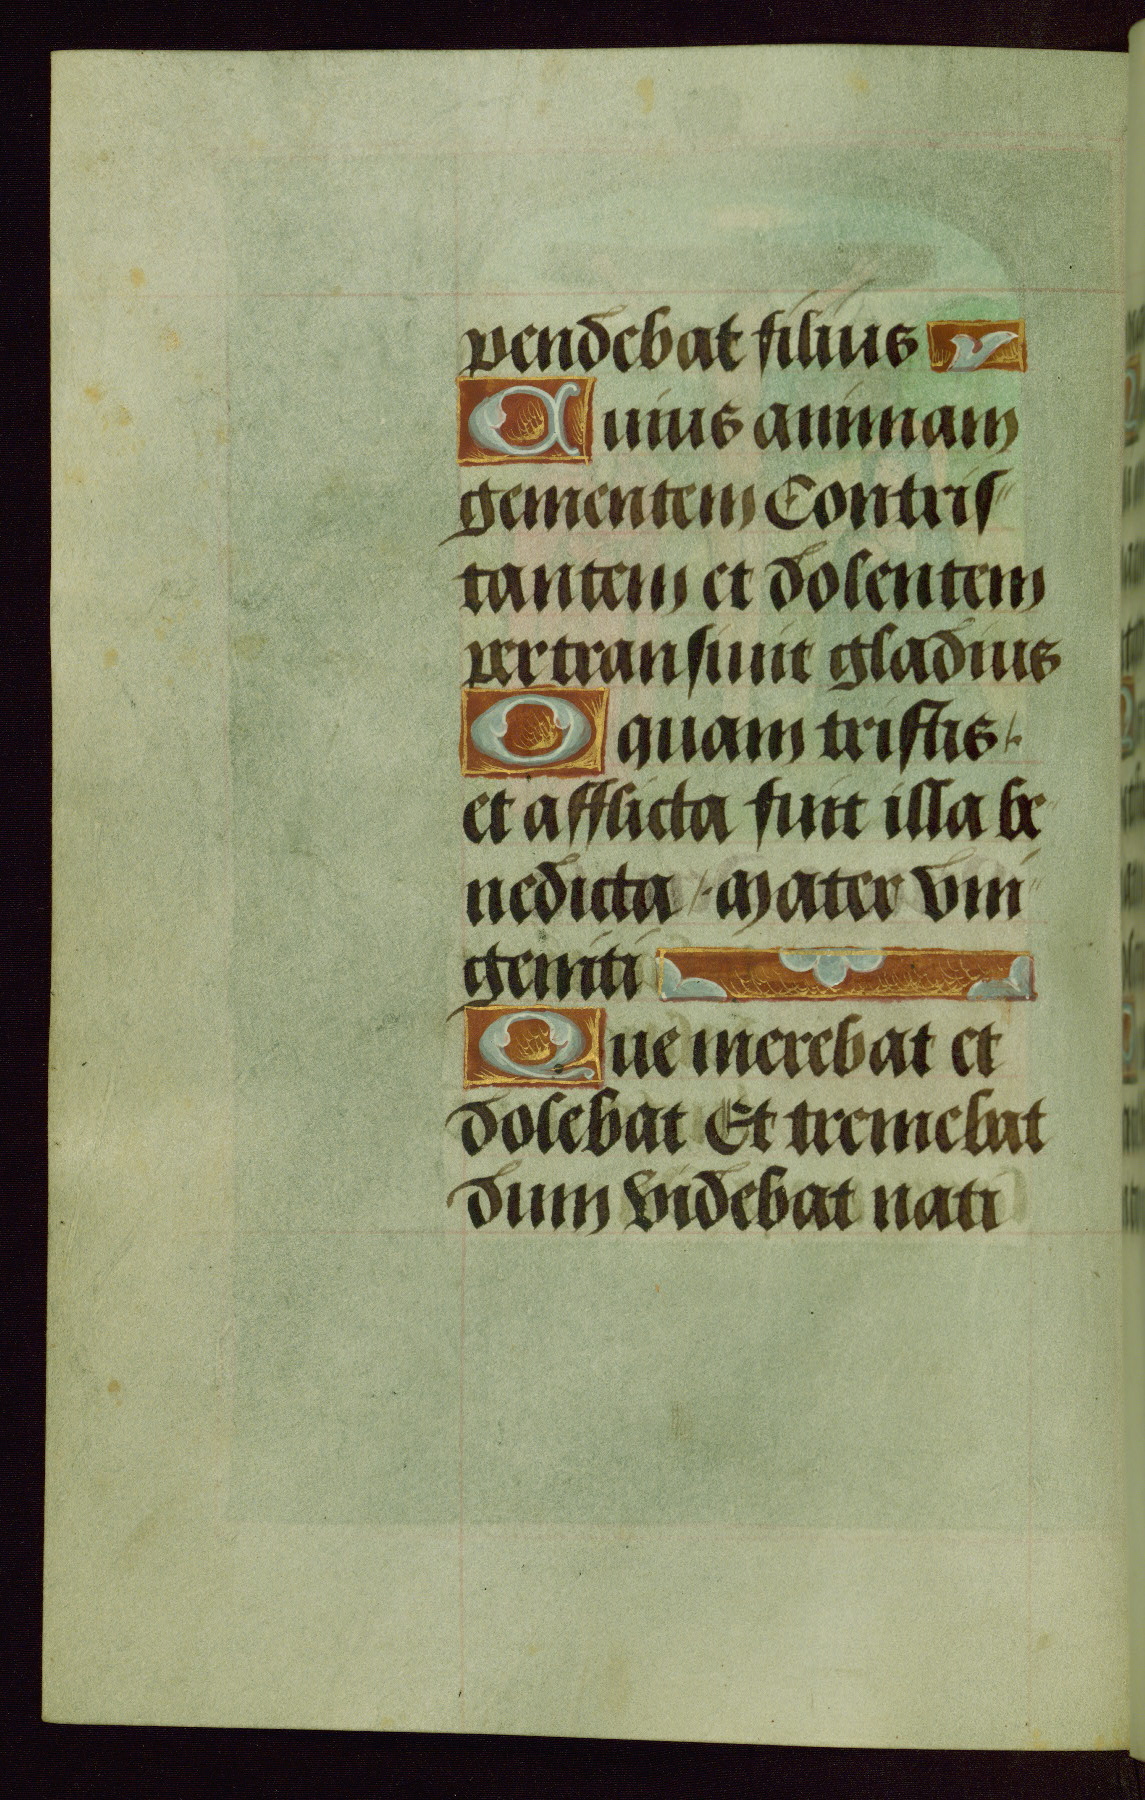 pendebat filius
Cuius animam
gementem Contris
tantem et dolentem
pertransiuit gladius
O quam tristis
et afflicta fuit illa be
nedicta / Mater vni
geniti
Que merebat et
dolebat Et tremebat
dum videbat nati